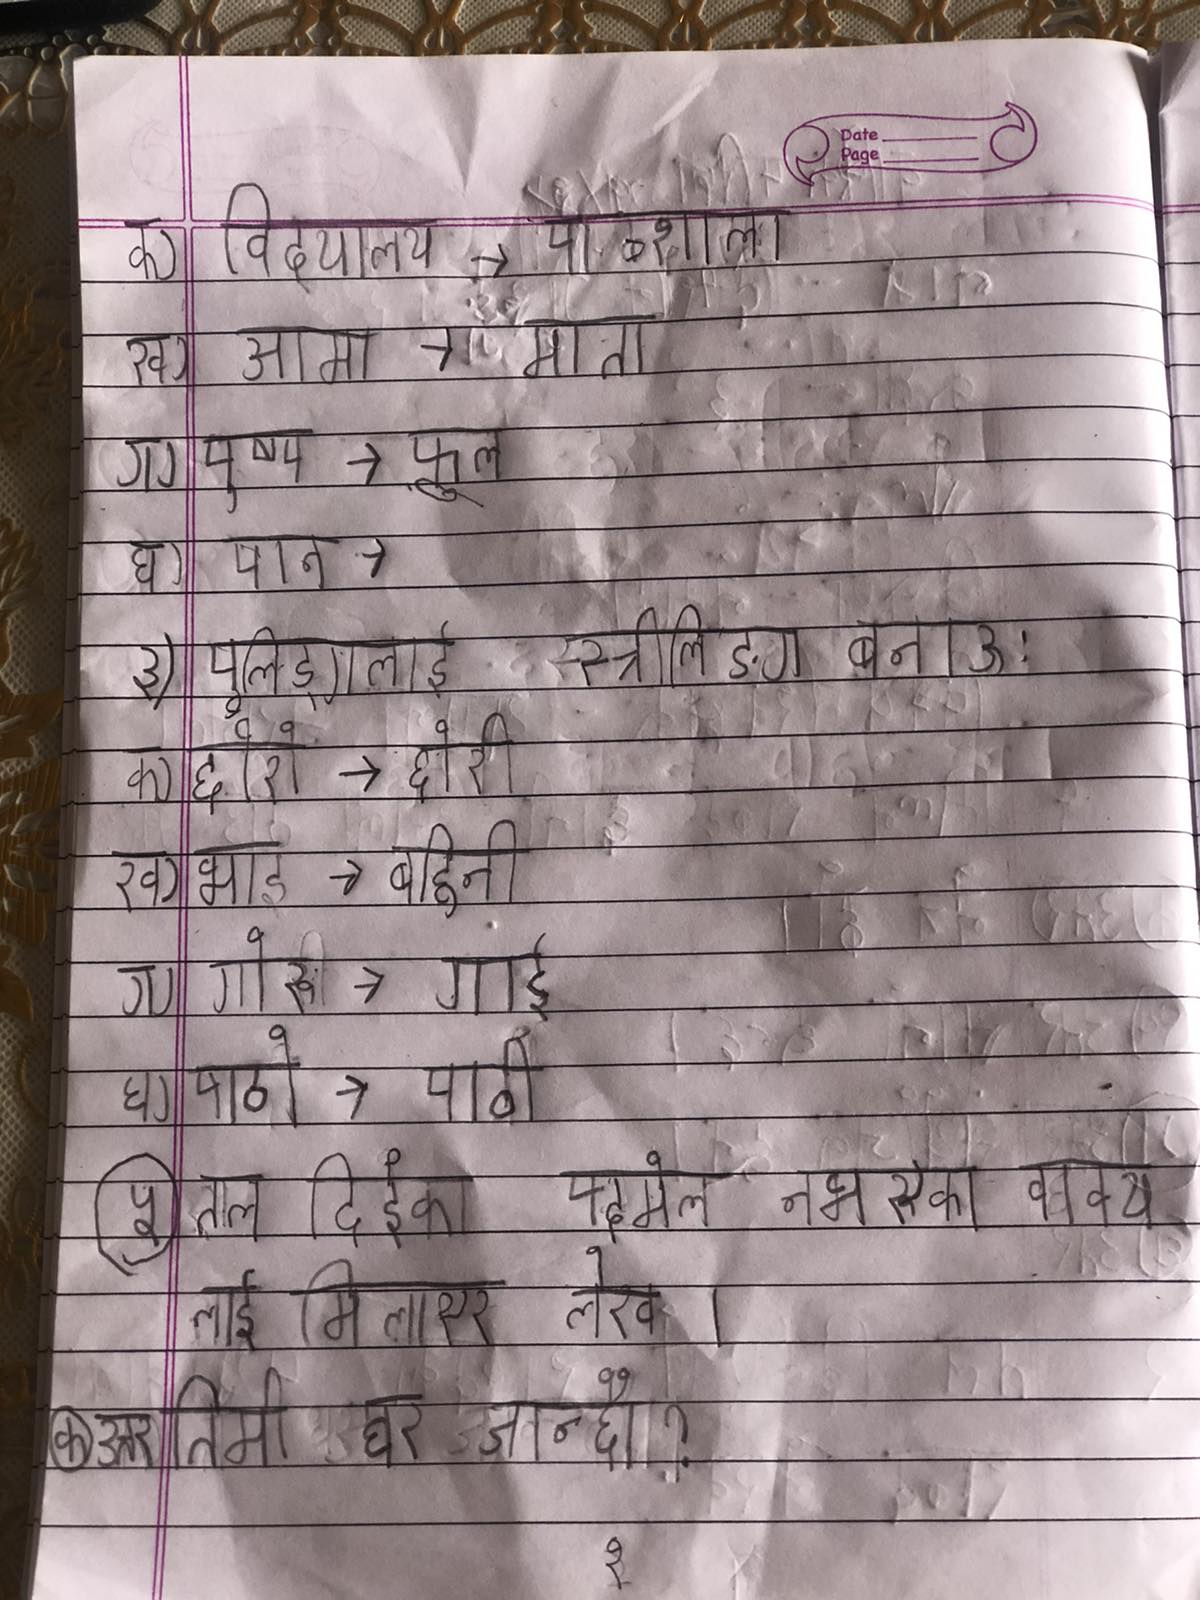 Date
Page
क) विद्यालय → पाठशाला
ख) आमा → माता
ग) पुष्प → फूल
घ) पान →
३) पुलिङ्गलाई स्त्रीलिङग बनाऊ:
क) छोरो → छोरी
ख) भाइ → बहिनी
ग) गोरू → गाई
घ) पाठो → पाठी
५ तल दिईको पदमेल नभएका वाक्य
लाई मिलाएर लेख ।
क) उत्तर तिमी घर जान्छौ ?
१